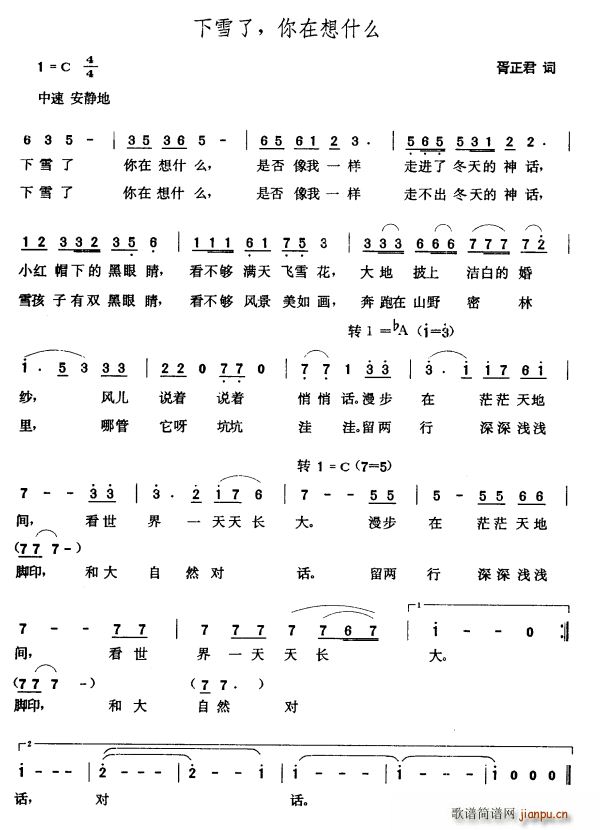 下雪了，你在想什么
1=C 4/4
胥正君 词
中速 安静地
6 3 5 - | 3 5 3 6 5 - | 6 5 6 1 2 3 . | 5 6 5 5 3 1 2 2 . |
下雪了 你在想什么， 是否 像我一样 走进了冬天的神话，
下雪了 你在想什么， 是否 像我一样 走不出冬天的神话，
1 2 3 3 2 3 5 6 | 1 1 1 6 1 7 5 3 | 3 3 3 6 6 6 7 7 7 7 2 |
小红 帽下的黑眼 睛， 看不够 满天 飞雪花， 大 地 披上 洁白的 婚
雪孩 子有双黑眼 睛， 看不够 风景 美如画， 奔跑在山野 密 林
转1=bA（i=3）
i . 5 3 3 3 | 2 2 0 7 7 0 | 7 7 1 . 3 3 | 3 . i i 7 6 i |
纱， 风儿 说着 说着 悄悄 话。漫步 在 茫茫 天地
里， 哪管 它呀 坑坑 洼 洼。留两 行 深深 浅浅
转1=C（7=5）
7 - - 3 3 | 3 . 2 i 7 6 | 7 - - 5 5 | 5 - 5 5 6 6 |
间， 看世 界 一天天长 大。 漫步 在 茫茫 天地
(7 7 7 -)
脚印， 和大 自然对 话。 留两 行 深深 浅浅
7 - - 7 7 | 7 7 7 7 7 6 7 | 1 i - - 0 :||
间， 看世 界 一天天长 大。
(7 7 7 - -) (7 7 .)
脚印， 和大 自然 对
2 i - - - | 2 - - 2 | 2 - 2 i | i - - - | i - - - | i 0 0 0 ||
话， 对 话。
歌谱简谱网
jianpu.cn